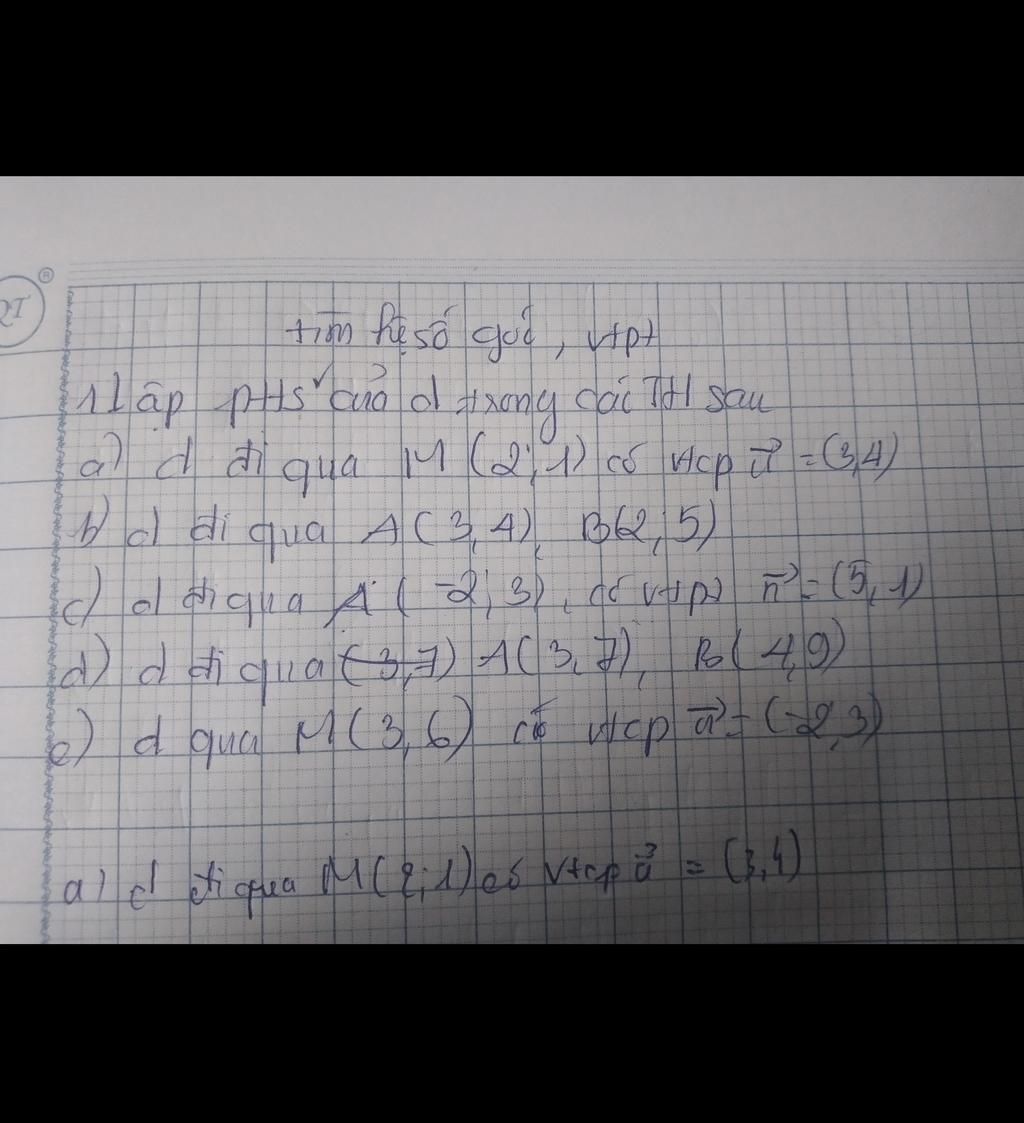 tìm hệ số góc, vtpt
1 Lập ptts của d trong các TH sau
a) d đi qua M (2; 1) có vtcp u⃗ = (3,4)
b) d đi qua A (3, 4), B(2; 5)
c) d đi qua A (-2; 3), có vtpt n⃗ = (5, 1)
d) d đi qua (3,7) A(3, 7), B(4,9)
e) d qua M(3, 6) có vtcp u⃗ = (-2,3)
a) d đi qua M(2; 1) có vtcp u⃗ = (3,4)